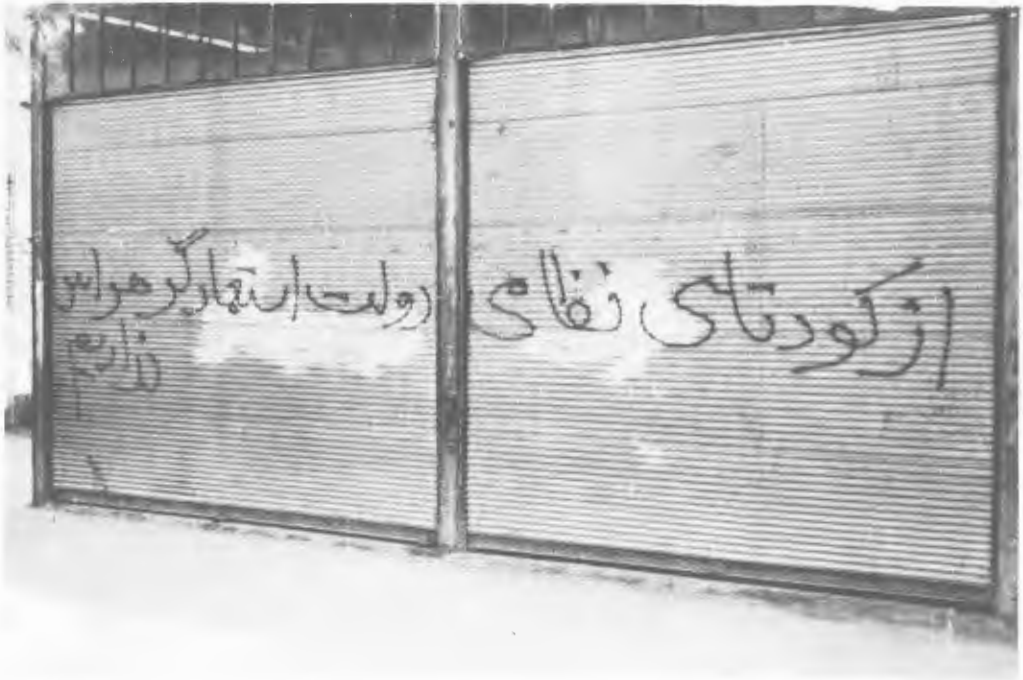 از کودتای نظامی دولت استعمارگر هراس
نداریم